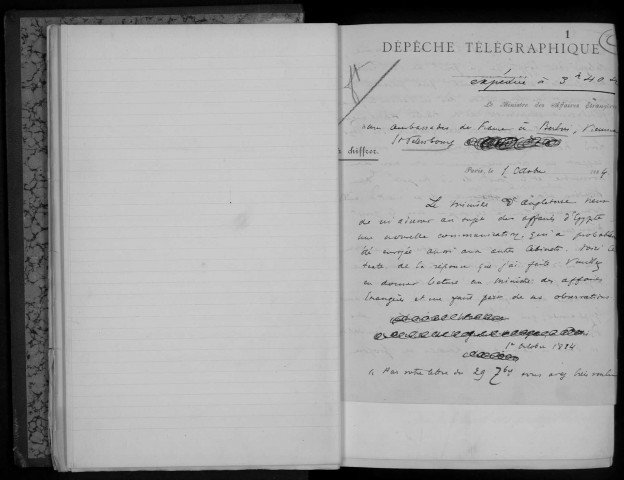 1
DÉPÊCHE TÉLÉGRAPHIQUE
expédiée à 3h 40
Le Ministre des Affaires Étrangères
aux Ambassadeurs de France à Berlin, Vienne
St Pétersbourg
à chiffrer
Paris, le 1 octobre 1884
Le ministre d'Angleterre vient
de m'adresser au sujet des affaires d'Égypte
une nouvelle communication, qui a
été envoyée aussi aux autres Cabinets. Voici le
texte de la réponse que j'ai faite. Veuillez
en donner lecture au ministre des affaires
étrangères et me faire part de ses observations
1er octobre 1884
Par votre lettre du 29 7bre vous avez bien voulu